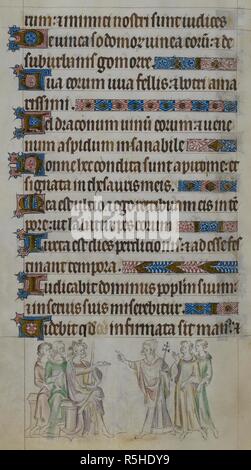 rum: et inimici nostri sunt iudices
De uinea sodomor uinea eorum: & de
suburbanis gomorre
Uua eorum uua fellis: & botri ama
rissimi
Fel draconum uinum eorum: & uene
num aspidum insanabile
Nonne hec condita sunt apud me: et
signata in thesauris meis
Mea est ultio & ego retribuam eis in tem
pore: ut labatur pes eorum
Iuxta est dies perdicionis: & adesse fes
tinant tempora
Iudicabit dominus populum suum:
et in seruis suis miserebitur
Uidebit qd infirmata sit manus: &
alamy
Image ID: R5HDY9
www.alamy.com